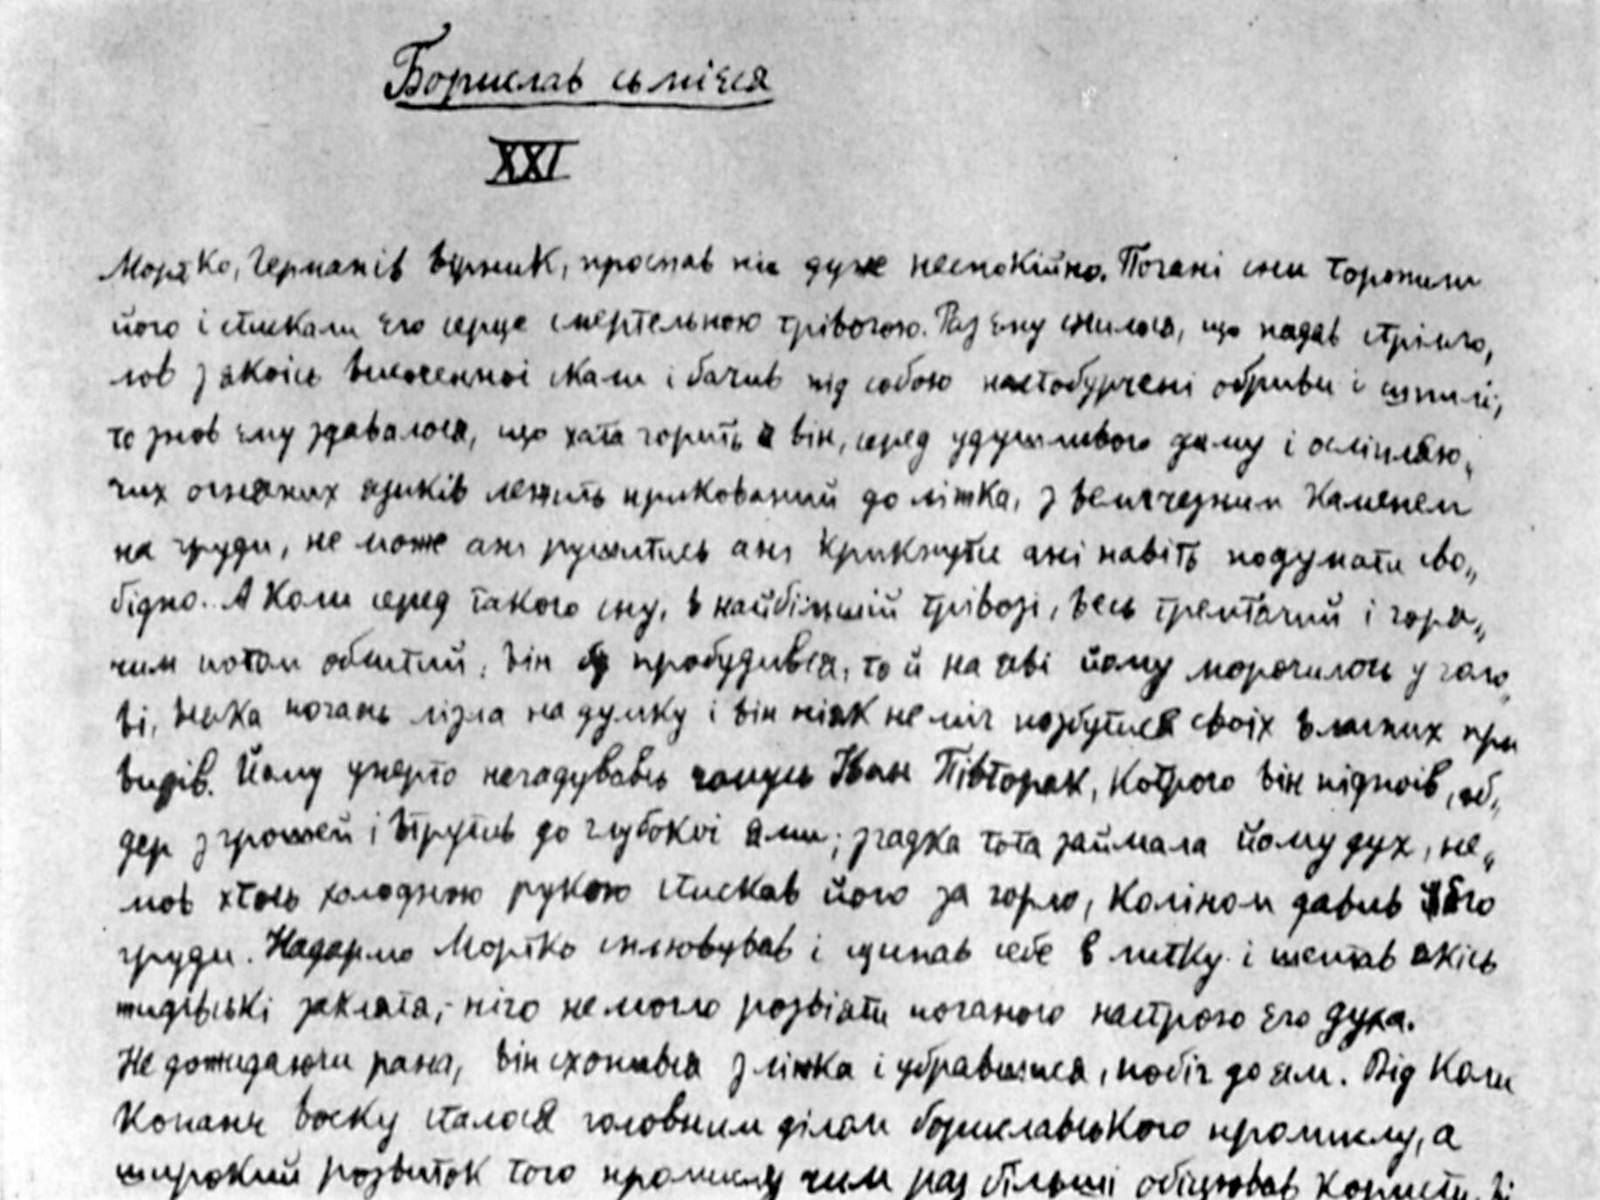 Борислав сьмієся
XXI
Мортко, Германів вірник, проспав ніч дуже неспокійно. Погані сни торопили
його і стискали єго серце смертельною трівогою. Раз єму снилося, що падав стрімго„
лов з якоїсь височенної скали і бачив під собою настобурчені обриви і шпилі,
то знов єму здавалося, що хата горить а він, серед удушливого диму і осліпляю„
чих огняних язиків лежить прикований до ліжка, з величезним каменем
на груди, не може ані рушитись ані крикнути ані навіть подумати сво„
бідно. А коли серед такого сну, в найбільшій трівозі, весь тремтячий і горя„
чим потом облитий, він пробудився, то й на яві йому морочилось у голо„
ві, всяка погань лізла на думку і він ніяк не міг позбутися своїх власних при
видів. Йому уперто нагадувавсь чомусь Іван Півторак, котрого він підпоїв, об„
дер з грошей і втрутив до глубокої ями; згадка тота займала йому дух, не„
мов хтось холодною рукою стискав його за горло, коліном давив його
груди. Надармо Мортко спльовував і щипав себе в литку і шептав якісь
жидівські закляття, ніщо не могло розвіяти поганого настрою єго духа.
Не дожидаючи рана, він схопився з ліжка і убравшися, побіг до ям. Від коли
копанє воску сталося головним ділом бориславського промислу, а
широкий розвиток того промислу чим раз більші обіцював користи, її